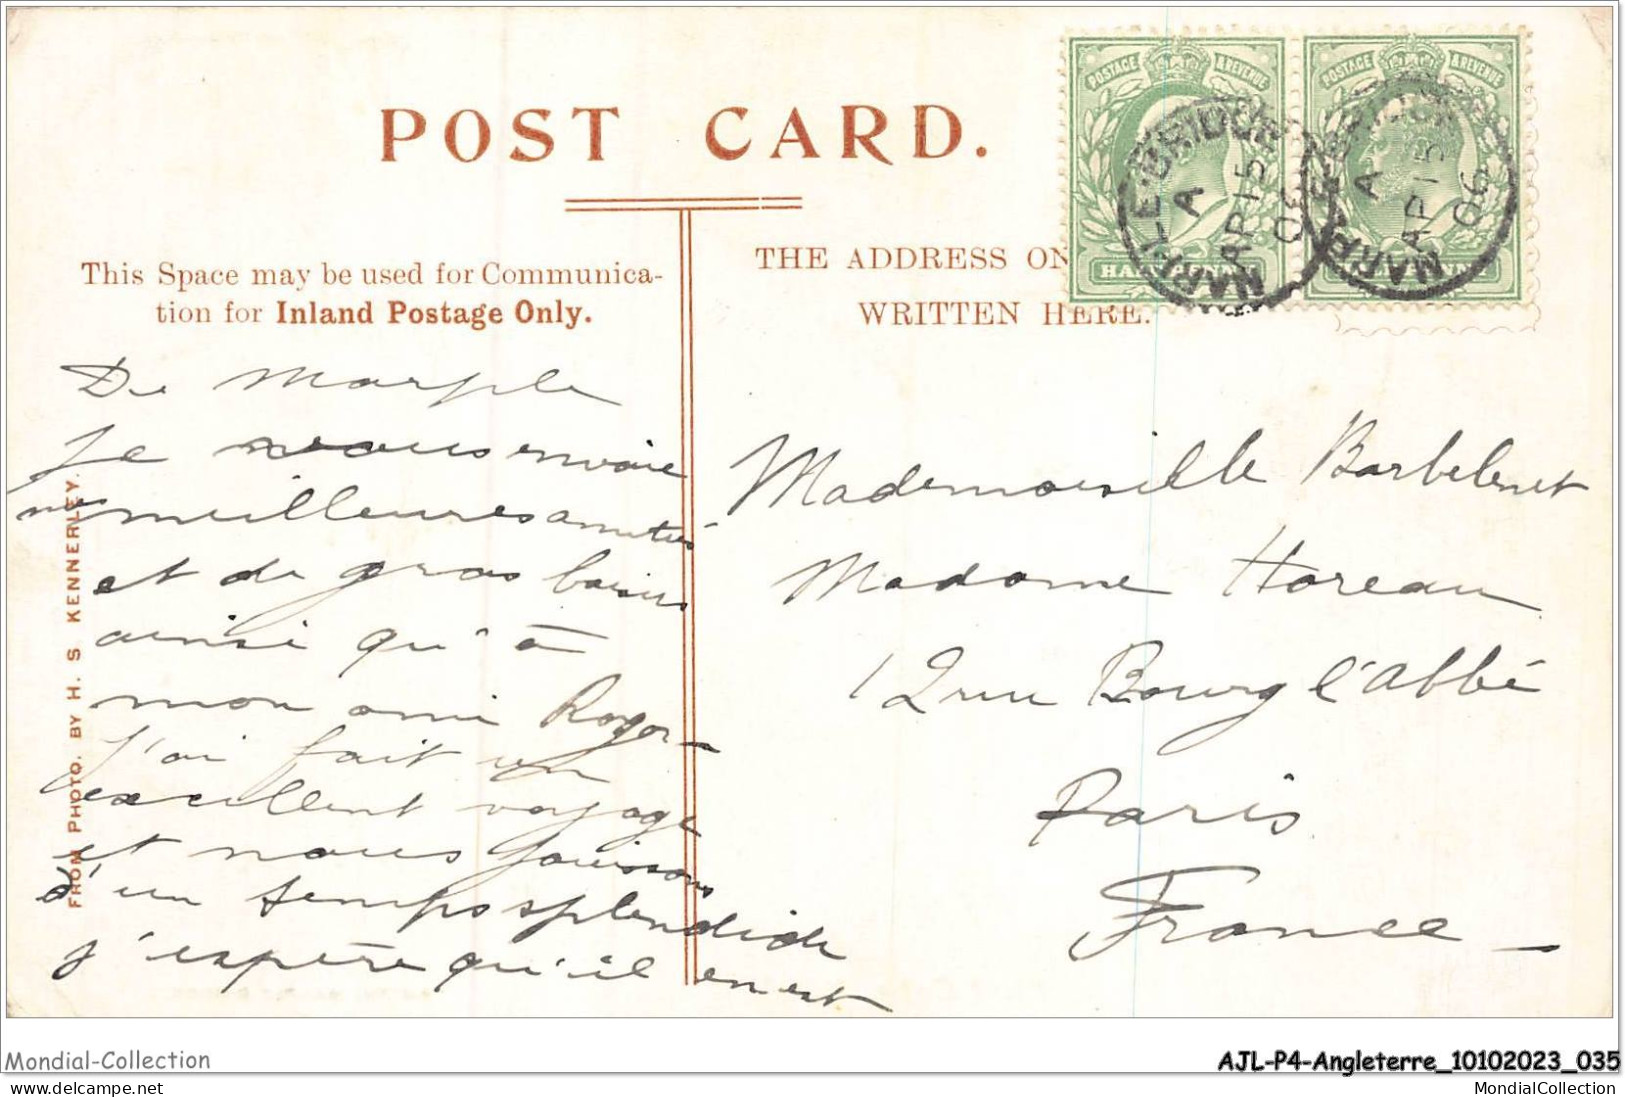 POST CARD.
This Space may be used for Communica-
tion for Inland Postage Only.
THE ADDRESS ON
WRITTEN HERE.
POSTAGE & REVENUE
HALFPENNY
MARPLE BRIDGE
A
AP 15
06
POSTAGE & REVENUE
MARPLE BRIDGE
A
AP 15
06
De Marple
Je vous envoie
mes meilleures amitiés
et de gros baisers
ainsi qu'à
mon ami Roger_
J'ai fait un
excellent voyage
et nous jouissons
d'un temps splendide
j'espère qu'il en est
Mademoiselle Barbelenet
Madame Horeau
12 rue Bourg l'abbé
Paris
France_
FROM PHOTO. BY H. S KENNERLEY.
Mondial-Collection
AJL-P4-Angleterre_10102023_035
delcampe.net
MondialCollection